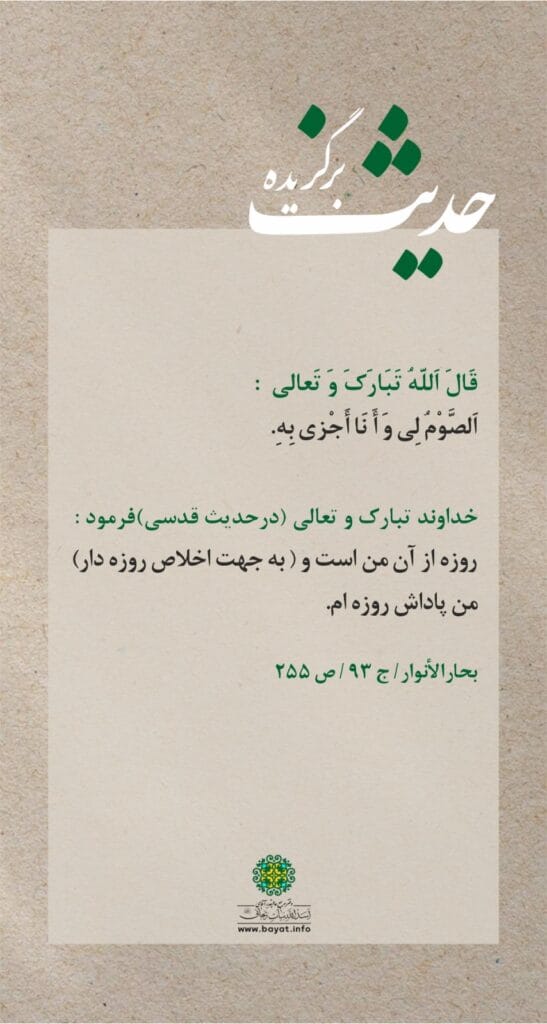 حدیث برگزیده
قَالَ اَللّهُ تَبَارَکَ وَ تَعالی :
اَلصَّوْمُ لِی وَ أَنَا أَجْزی بِهِ.
خداوند تبارک و تعالی (درحدیث قدسی)فرمود :
روزه از آن من است و ( به جهت اخلاص روزه دار)
من پاداش روزه ام.
بحارالأنوار/ ج ۹۳ / ص ۲۵۵
www.bayat.info